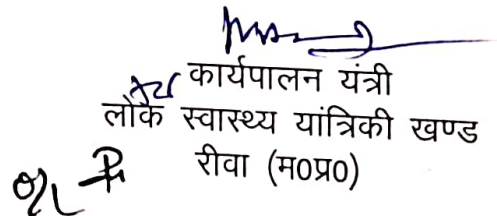 कार्यपालन यंत्री
लोक स्वास्थ्य यांत्रिकी खण्ड
रीवा (म0प्र0)